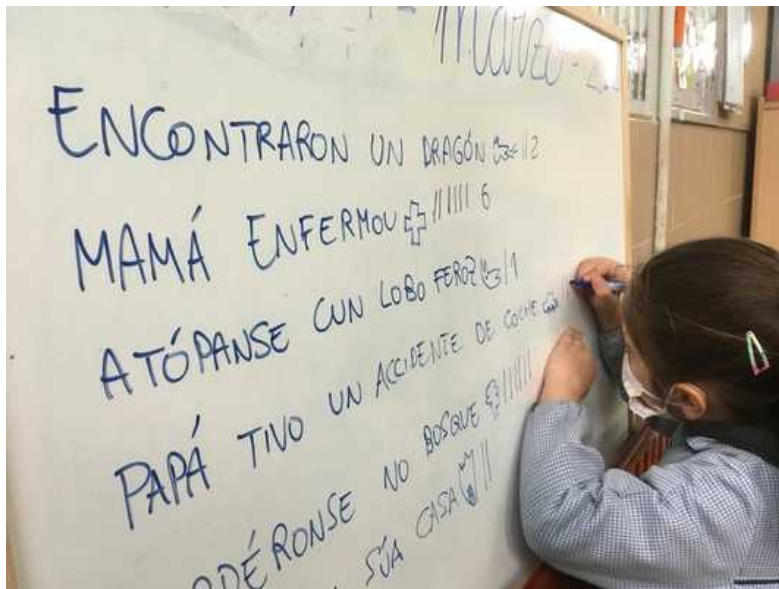 Marzo
ENCONTRARON UN DRAGÓN 2
MAMÁ ENFERMOU 6
ATÓPANSE CUN LOBO FEROZ 1
PAPÁ TIVO UN ACCIDENTE DE COCHE
DÉRONSE NO BOSQUE
SÚA CASA